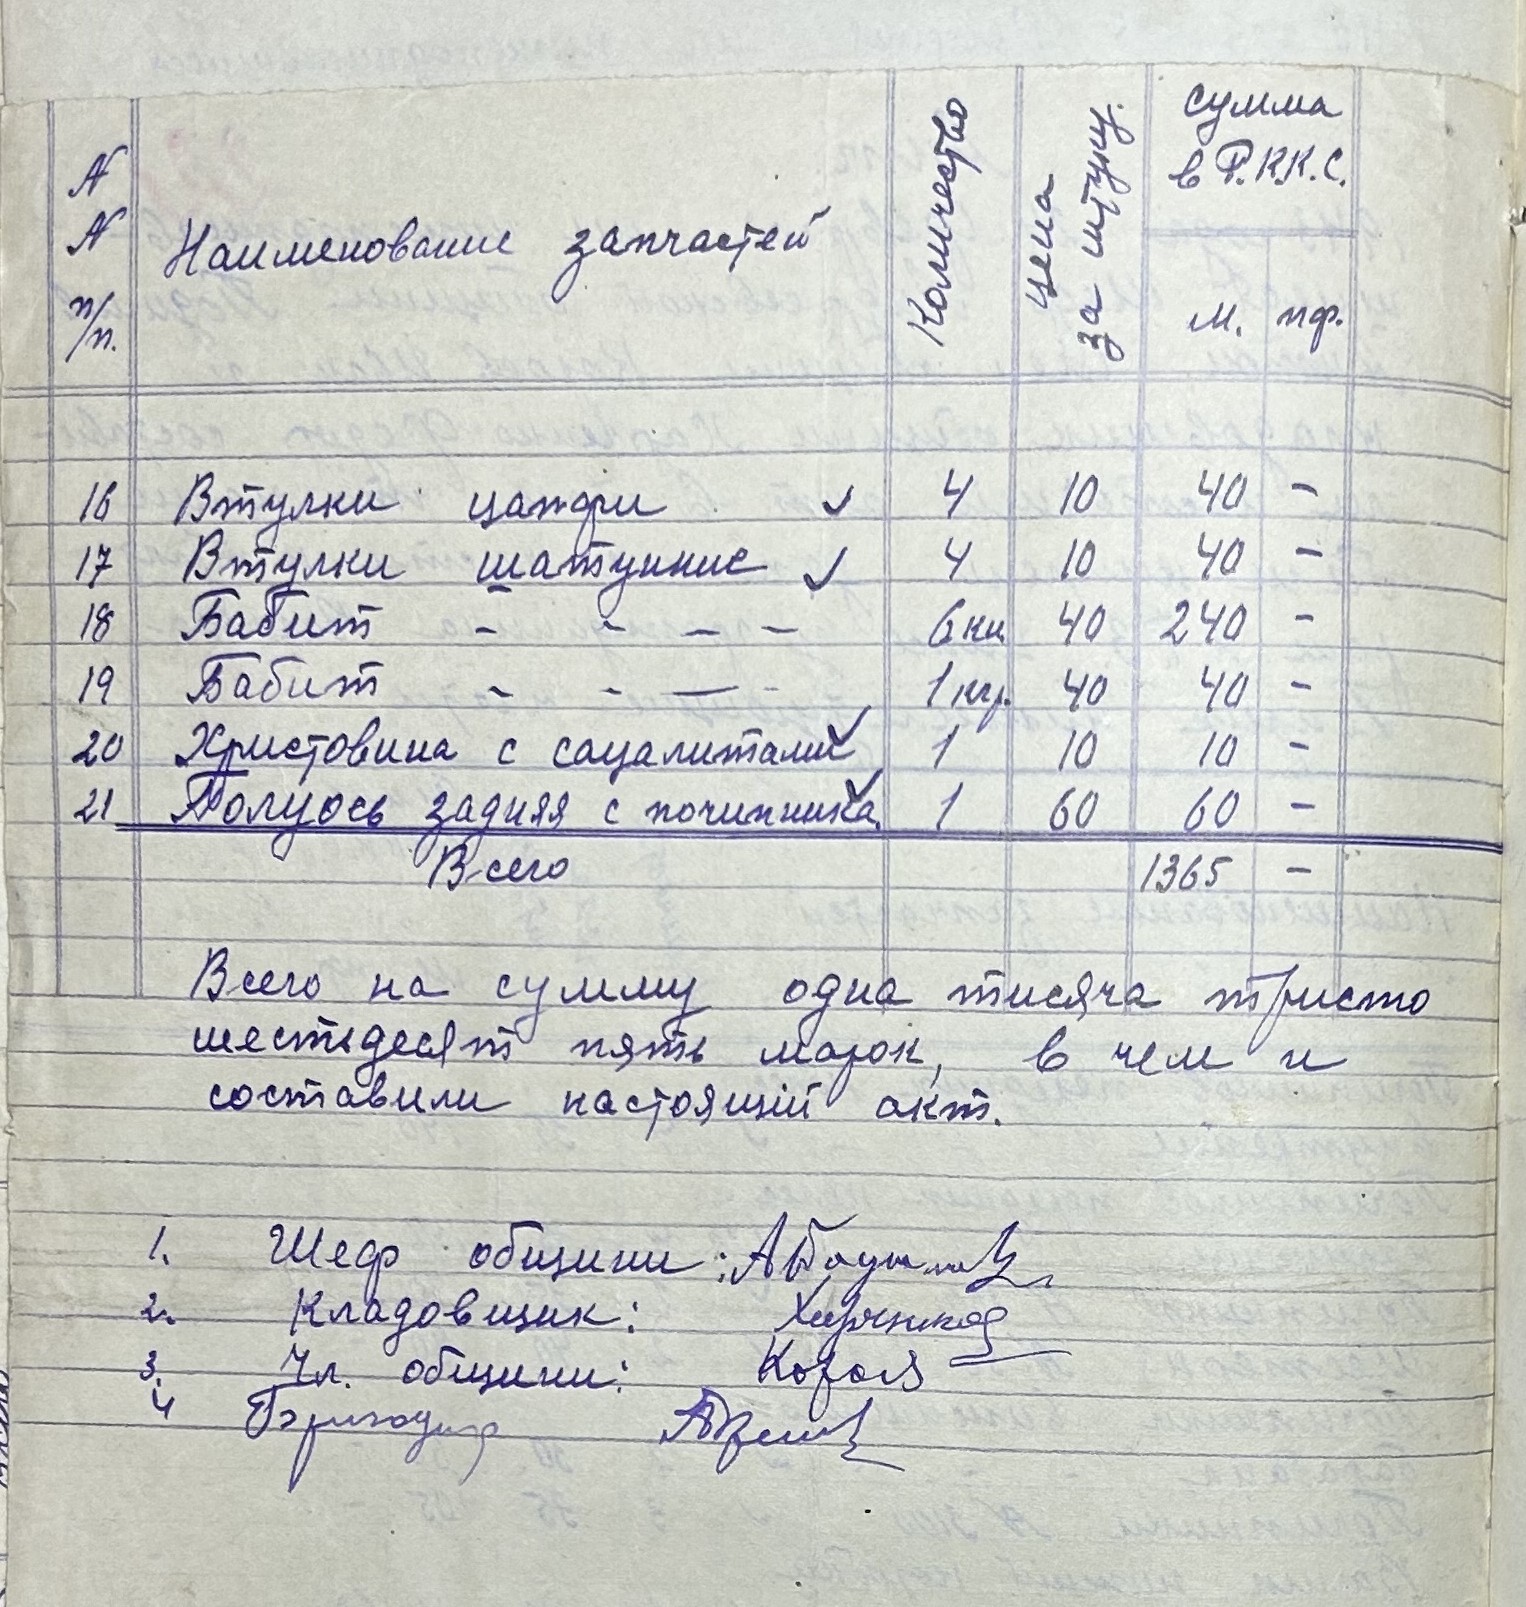 N N п/п. Наименование запчастей Количество цена за штуку. сумма в Р.КК.С.
м. пф.
16 Втулки цапфи ✓ 4 10 40 –
17 Втулки шатунние ✓ 4 10 40 –
18 Бабит – – – – 6 кг. 40 240 –
19 Бабит – – — - 1 кгр. 40 40 –
20 Христовина с сацалитами ✓ 1 10 10 –
21 Полуось задняя с почипника. ✓ 1 60 60 –
Всего 1365 –
Всего на сумму одна тисяча тристо
шестьдесят пять марок, в чем и
составили настоящий акт.
1. Шеф общини:
2. Кладовщик:
3. Чл. общини: Король
4 Бригадир